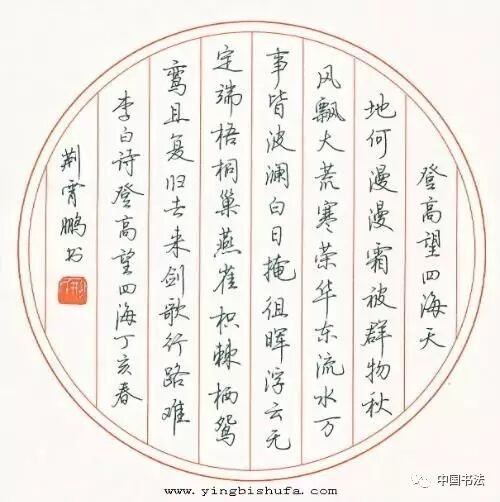 登高望四海天
地何漫漫霜被群物秋
风飘大荒寒荣华东流水万
事皆波澜白日掩徂晖浮云无
定端梧桐巢燕雀枳棘栖鸳
鸾且复归去来剑歌行路难
李白诗登高望四海丁亥春
荆霄鹏书
www.yingbishufa.com
中国书法